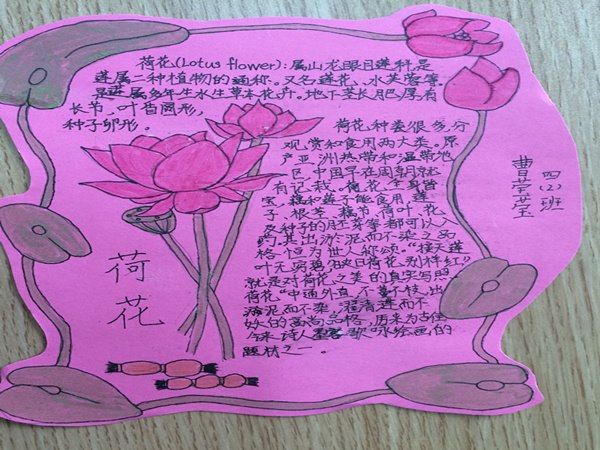 荷花(Lotus flower):属山龙眼目莲科,是
莲属二种植物的通称。又名莲花、水芙蓉等。
是莲属多年生水生草本花卉。地下茎长肥厚,有
长节,叶盾圆形,
种子卵形。
荷花种类很多,分
观赏和食用两大类。原
产亚洲热带和温带地
区,中国早在周朝就
有记载。荷花全身皆
宝,藕和莲子能食用,莲
子、根茎、藕节、荷叶、花
及种子的胚芽等都可以入
药。其出淤泥而不染之品
格恒为世人称颂。“接天莲
叶无穷碧,映日荷花别样红”
就是对荷花之美的真实写照。
荷花“中通外直,不蔓不枝,出
淤泥而不染,濯清莲而不
妖的高尚品格,历来为古往
今来诗人墨客歌咏绘画的
题材之一。
荷
花
四(2)班
曹莹莹